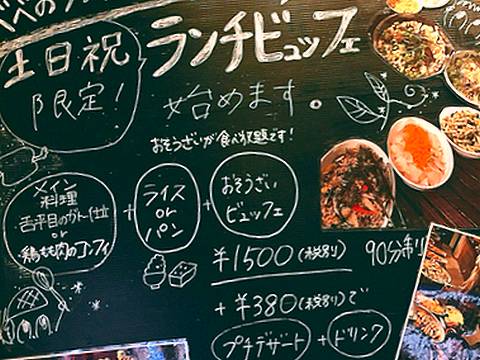 土日祝
限定!
ランチビュッフェ
始めます。
おそうざいが食べ放題です!
メイン
料理
舌平目の
or
鶏もも肉のコンフィ
+
ライス
or
パン
+
おそうざい
ビュッフェ
¥1500(税別) 90分制
+¥380(税別)で
プチデザート + ドリンク